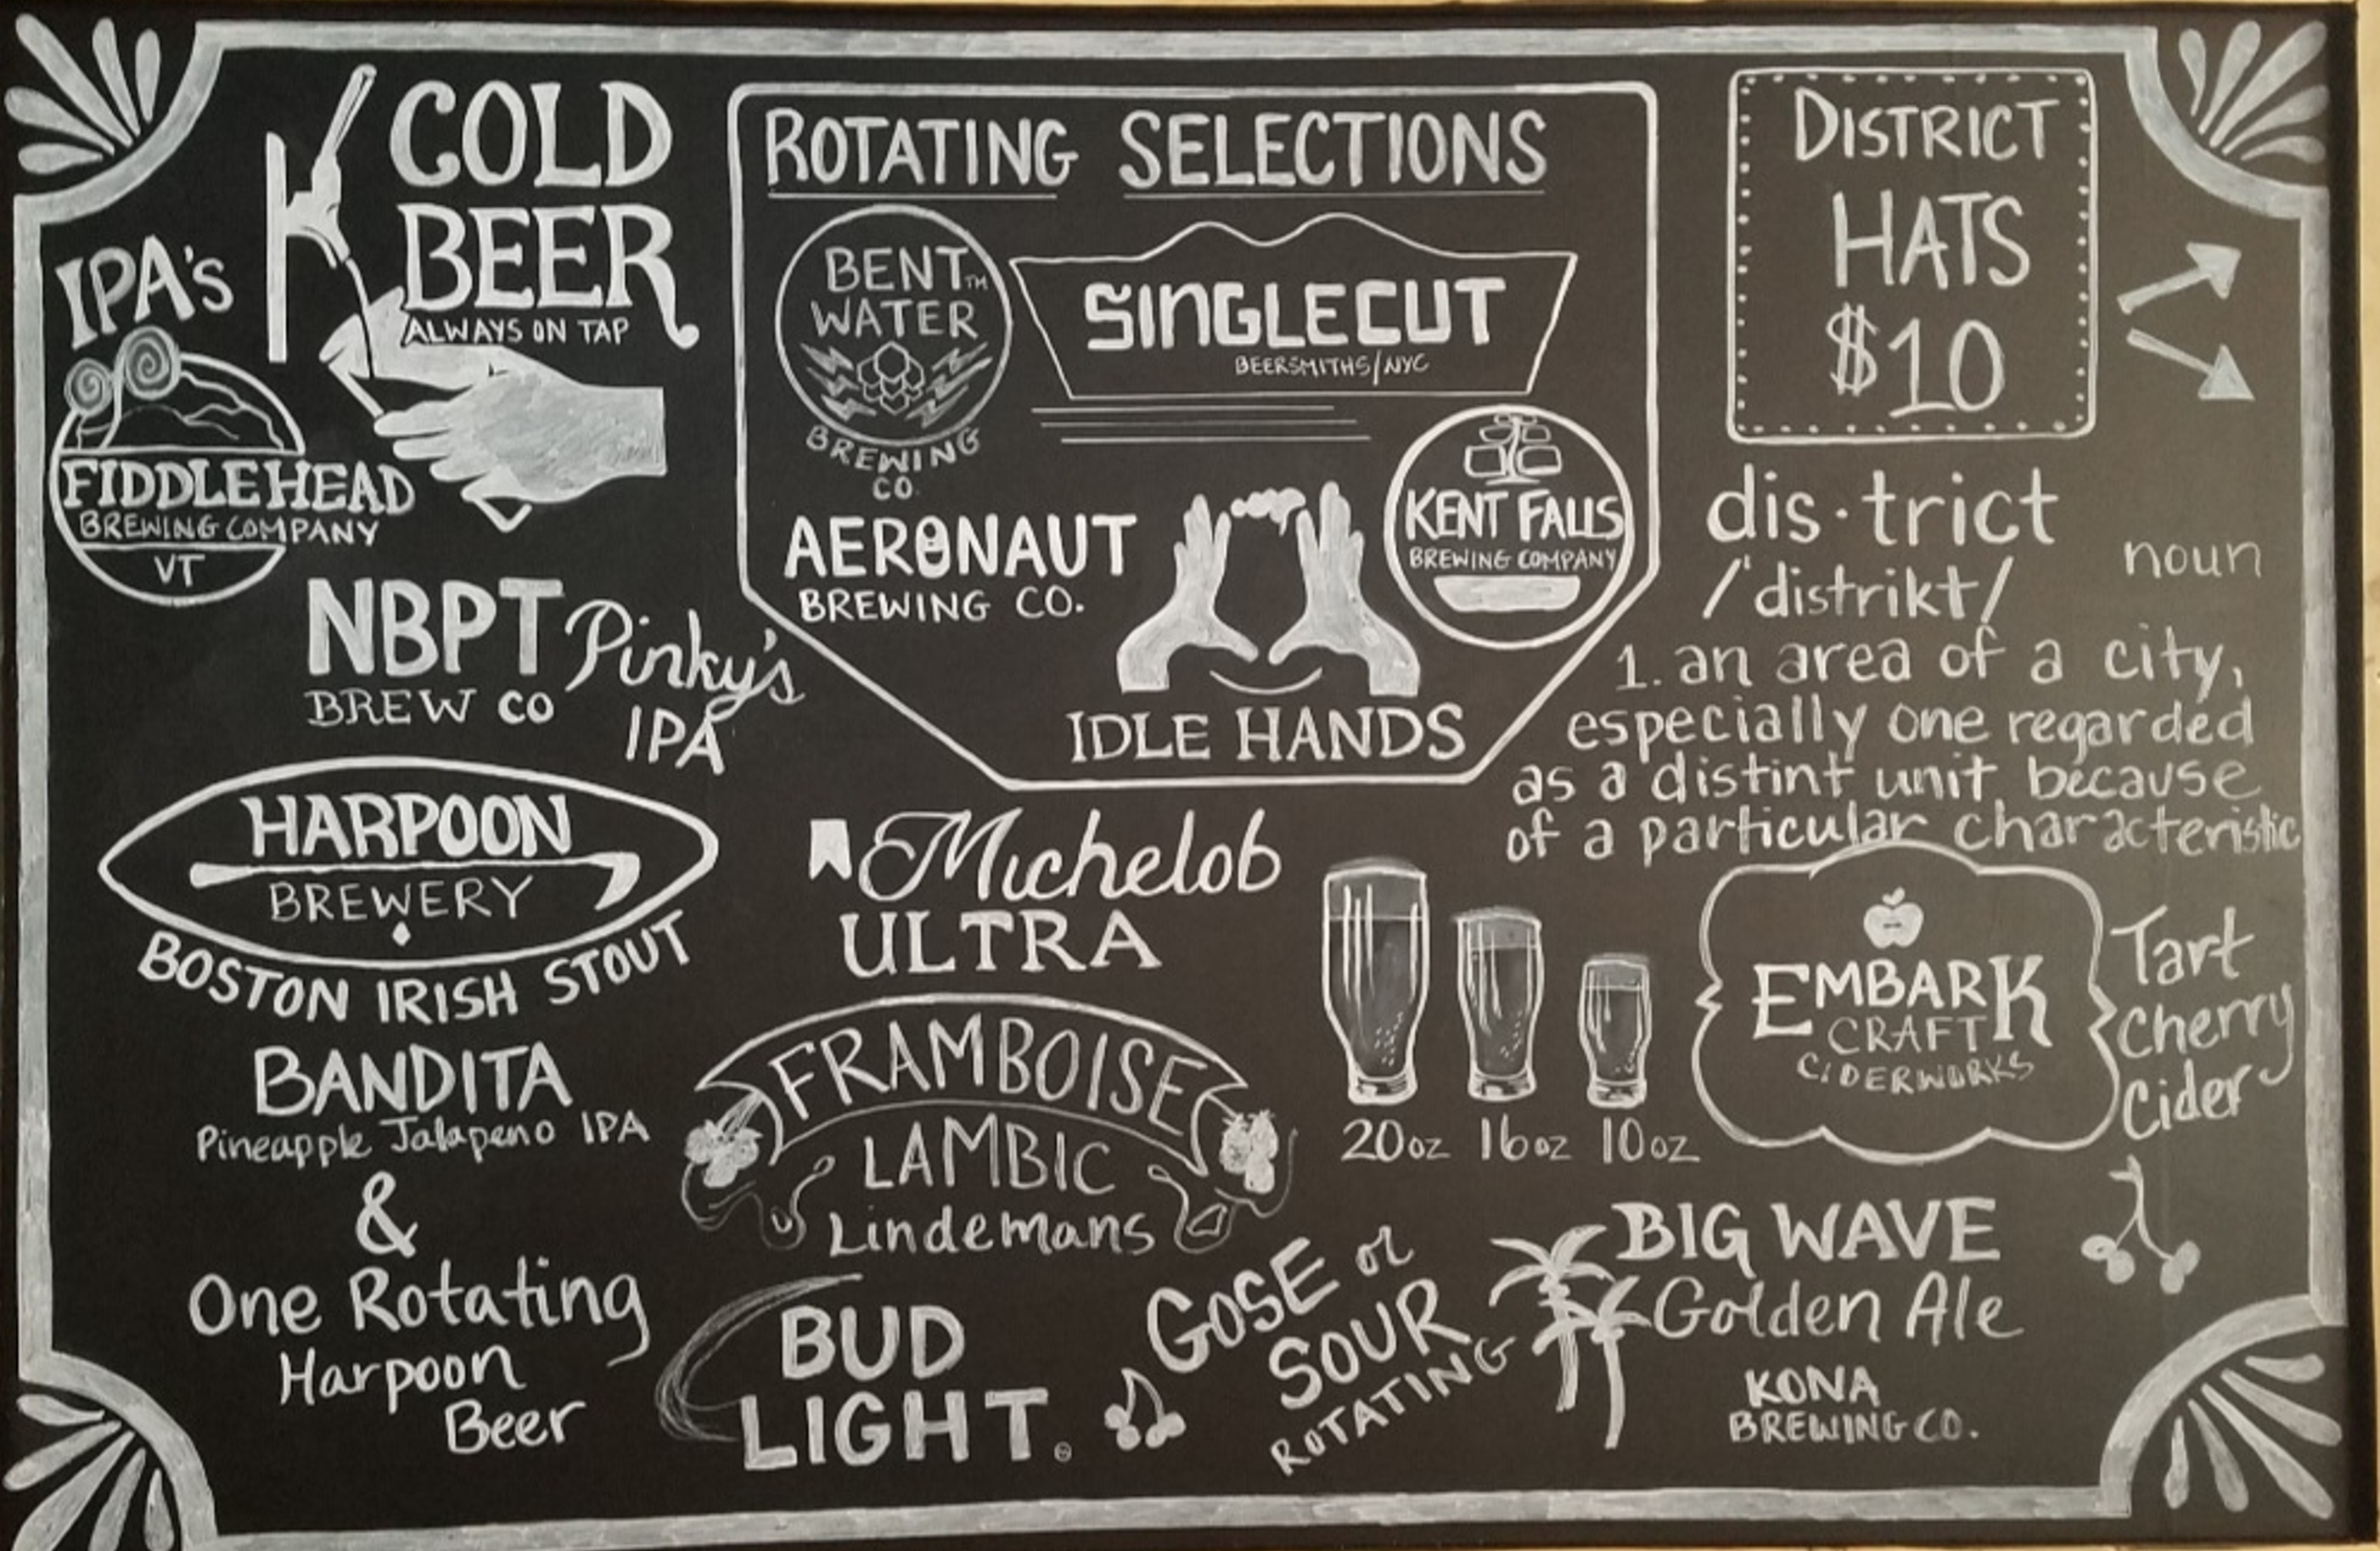 COLD
BEER
ALWAYS ON TAP
IPA's
FIDDLEHEAD
BREWING COMPANY
VT
NBPT
BREW CO
Pinky's
IPA
HARPOON
BREWERY
BOSTON IRISH STOUT
BANDITA
Pineapple Jalapeno IPA
&
One Rotating
Harpoon
Beer
ROTATING SELECTIONS
BENT™
WATER
BREWING
CO.
SINGLECUT
BEERSMITHS/NYC
AERONAUT
BREWING CO.
KENT FALLS
BREWING COMPANY
IDLE HANDS
Michelob
ULTRA
FRAMBOISE
LAMBIC
Lindemans
BUD
LIGHT®
GOSE or
SOUR
ROTATING
DISTRICT
HATS
$10
dis·trict
noun
/'distrikt/
1. an area of a city,
especially one regarded
as a distint unit because
of a particular characteristic
20oz 16oz 10oz
EMBARK
CRAFT
CIDERWORKS
Tart
Cherry
Cider
BIG WAVE
Golden Ale
KONA
BREWING CO.